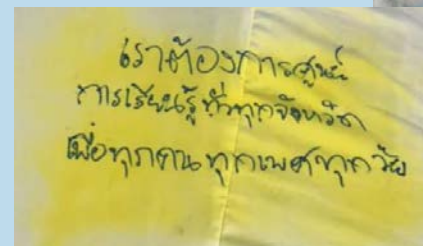 เราต้องการศูนย์
การเรียนรู้ทั่วทุกจังหวัด
เพื่อทุกคนทุกเพศทุกวัย